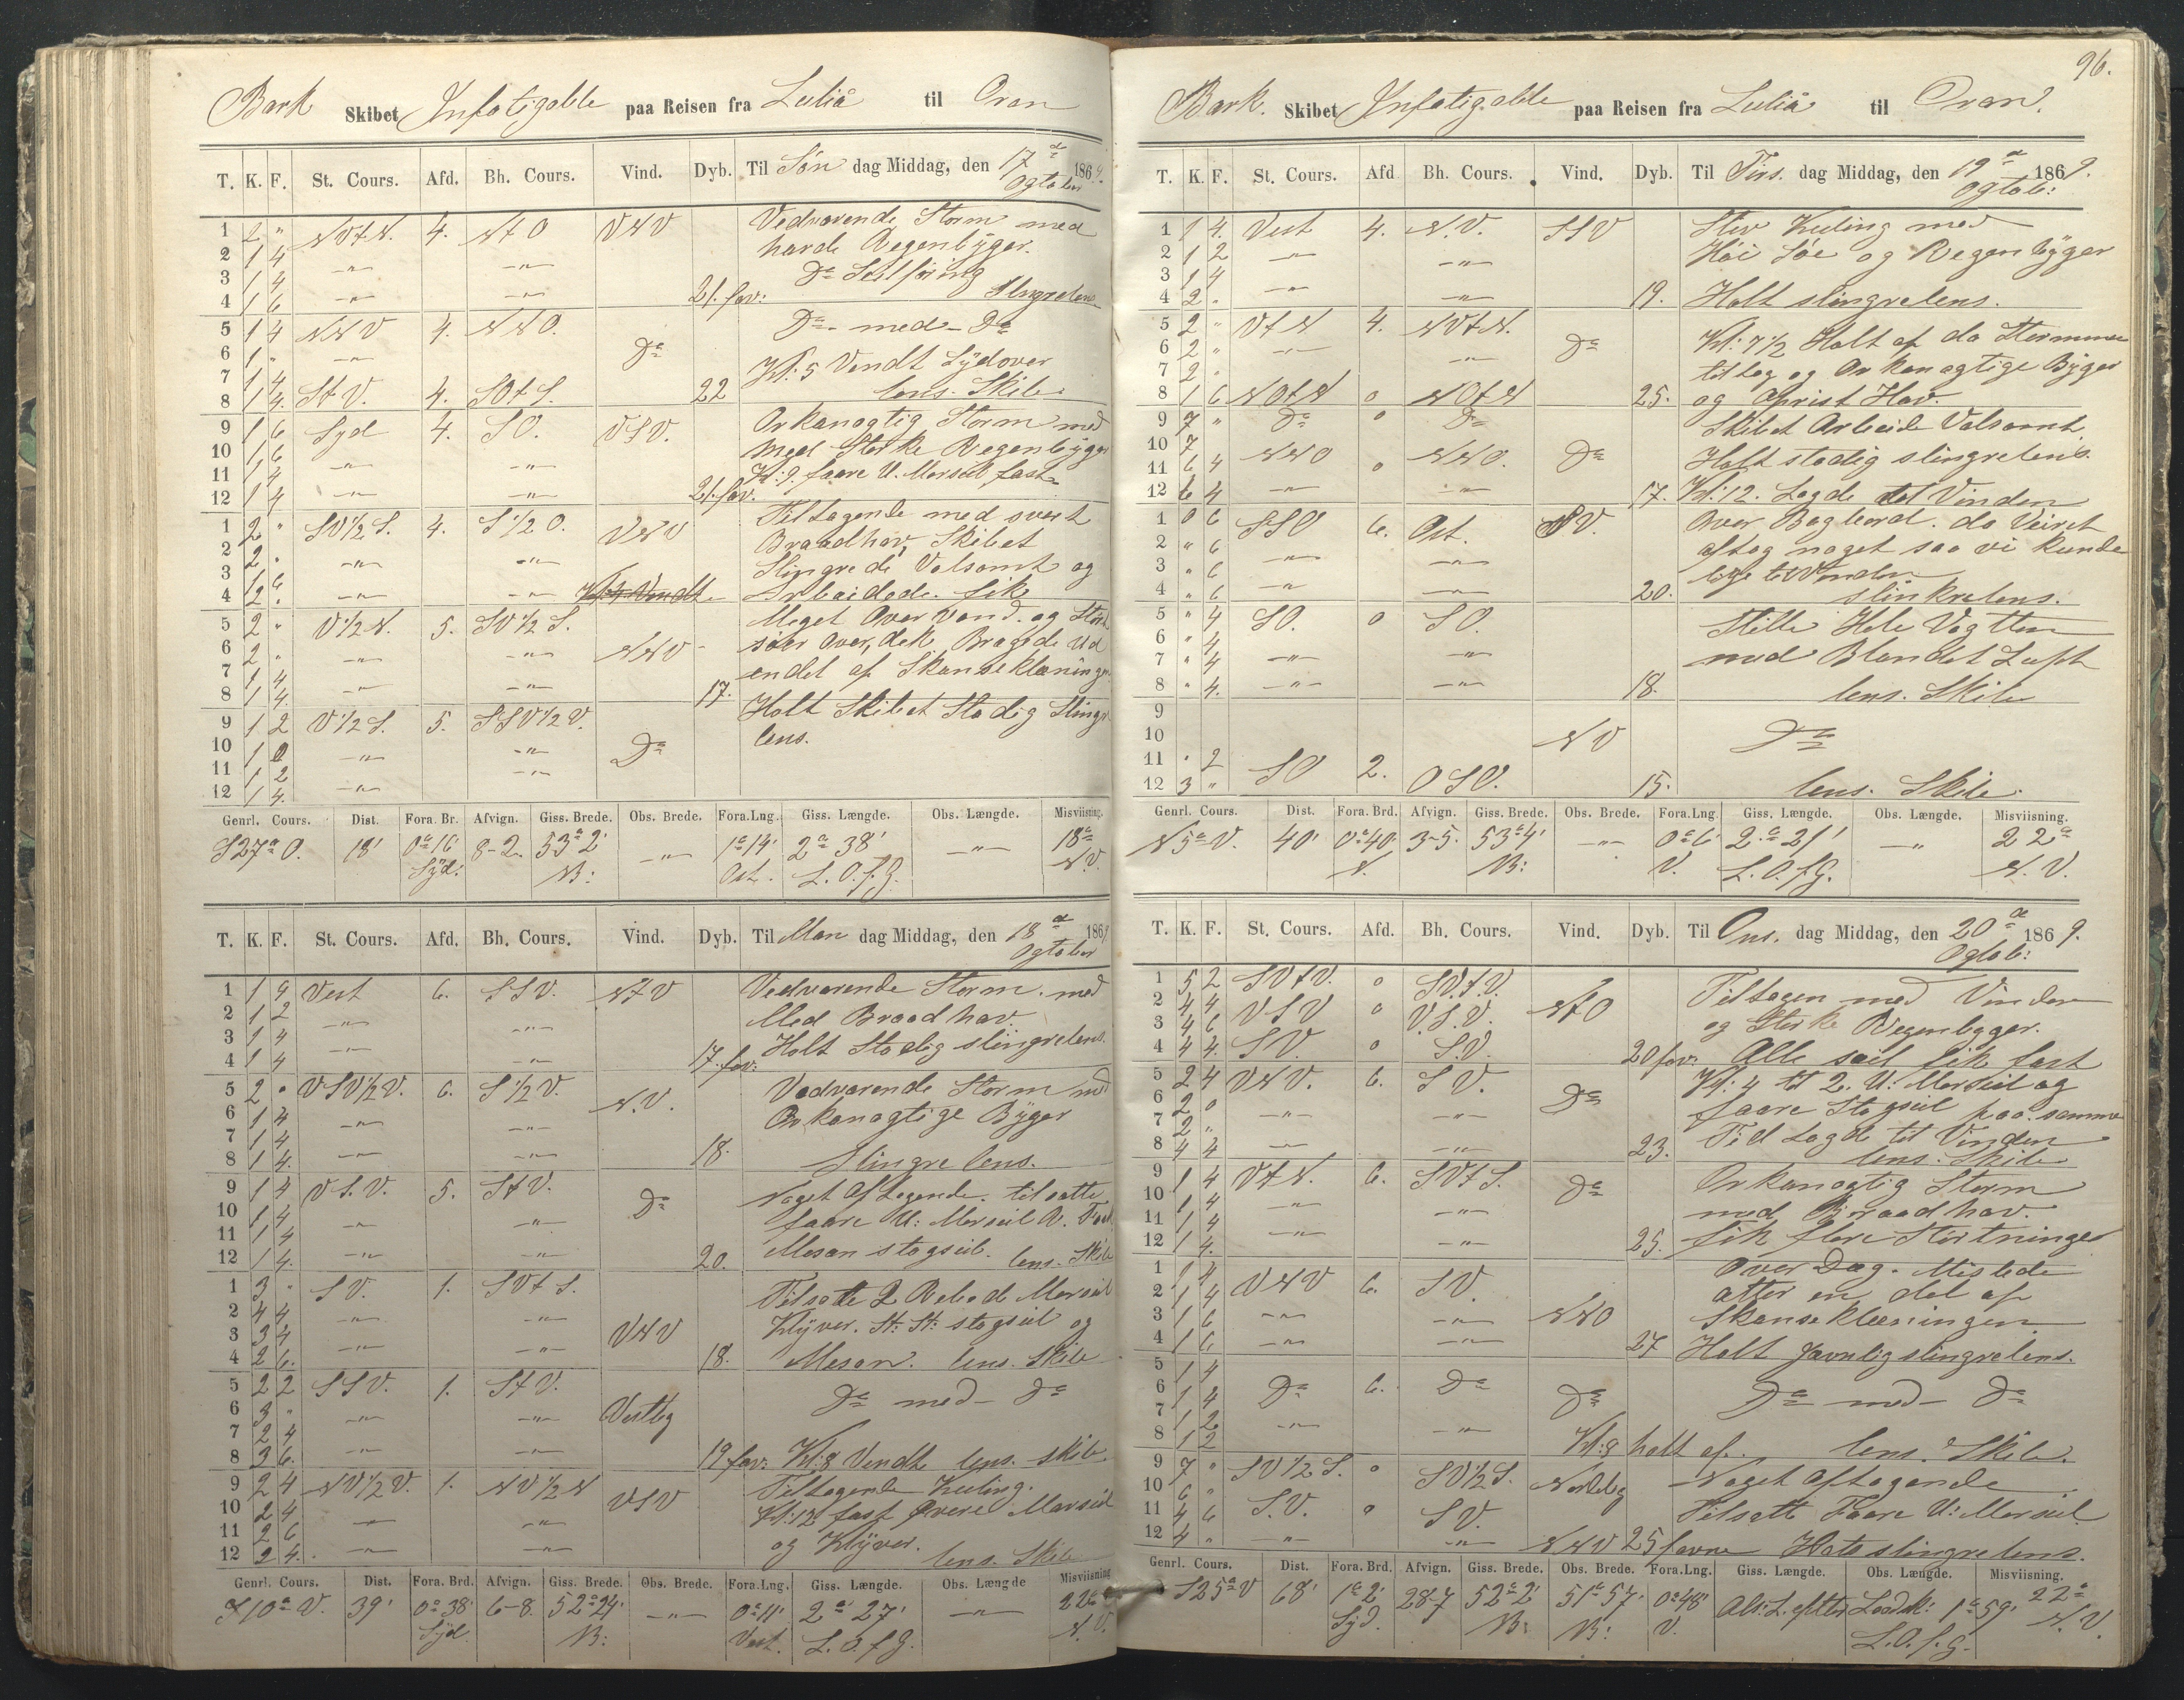 Bark Skibet Infatigable paa Reisen fra Luliå til Oran
T. K. F. St. Cours. Afd. Bh. Cours. Vind. Dyb. Til Søn dag Middag, den 17de Ogtober 1869.
1 2 " NVtN. 4. NtO VNV Vedvarende Storm med
2 1 4 -"- -"- harde Regenbÿger.
3 1 4 -"- -"- Do Seilføring
4 1 6 -"- -"- 21. fav: Slingrelens
5 1 4 NNV 4. NNO. Do Do med Do
6 1 " -"-
7 1 4 Kl: 5 Vendt Sÿdover
8 1 4. StV. 4. SOtS. 22 lens. Skib
9 1 6 Syd 4. SO. VSV. Orkanagtig Storm med
10 1 6 med Sterke Regenbÿger
11 1 4 -"- -"- Kl: 9. faare U. Merseil fast
12 1 4 -"- -"- 21. fav.
1 2 " SV1/2S. 4. S1/2O. VNV Tiltagende med svert
2 2 " Braadhav, Skibet
3 1 6 -"- -"- Slingrede Volsomt og
4 2 " -"- -"- Kl: 4 Vendt Arbeidede. fik
5 2 " V1/2N. 5. SV1/2S. Meget Over Vand. og Stört
6 2 " -"- -"- NNV søer Over, dek Bragede Ud
7 1 4 endel af Skanseklæninge
8 1 4. -"- -"- 17.
9 1 2 V1/2S. 5. SSV1/2V. Holt Skibet Stadig Slingr
10 1 0 -"- -"- Do lens.
11 1 2 -"-
12 1 4. -"-
Genrl. Cours. Dist. Fora. Br. Afvign. Giss. Brede. Obs. Brede. Fora.Lng. Giss. Længde. Obs. Længde. Misviisning.
S27°O. 18' 0°16' 8-2 53°2' -"- 1°14' 2°38' -"- 18°
Sÿd. N: Ost. L.O.f.G. N.V.
T. K. F. St. Cours. Afd. Bh. Cours. Vind. Dyb. Til Man dag Middag, den 18de Ogtober 1869
1 1 4 Vest 6. SSV. NtV Vedvarende Storm. med
2 1 2 -"- Med Braadhav
3 1 4 -"- Holt Stadig slingrelens
4 1 4 -"- -"- 17. fav:
5 2 " VSV1/2V. 6. S1/2V. N.V. Vedvarende Storm med
6 1 4 -"- -"- Orkanagtige Bÿger
7 1 4
8 1 4. -"- -"- 18. Slingre lens.
9 1 4 VSV. 5. StV. Do Noget Aftagende. tilsatte
10 1 4 faare U: Merseil
11 1 4 -"- -"-
12 1 4. -"- -"- 20. Mesan stagseil. lens. Skib
1 3 " SV. 1. SVtS. Tilsatte 2 Rebede Merseil
2 4 4 -"- -"- Klÿver. St: St: stagseil og
3 3 4 VNV
4 2 6. -"- -"- 18. Mesan. lens. Skib
5 2 2 SSV. 1. StV. Do med Do
6 3 " -"- -"- Vestlig
7 2 4
8 3 6. -"- -"- 19 fav: Kl: 8 Vendt lens. skib.
9 2 4 NV1/2V. 1. NV1/2N Tiltagende Kuling.
10 2 4 VSV Kl: 12 fast Øvere Merseil
11 2 6 -"- -"- og Klÿver.
12 2 4. -"- -"- lens. Skib
Genrl. Cours. Dist. Fora. Brd. Afvign. Giss. Brede. Obs. Brede. Fora.Lng. Giss. Længde. Obs. Længde Misviisning
S10°V. 39' 0°38' 6-8. 52°24' -"- 0°11' 2°27' -"- 22°
Sÿd N: Vest. L.O.f.G. N.V.
96.
Bark. Skibet Infatigable paa Reisen fra Luliå til Oran.
T. K. F. St. Cours. Afd Bh. Cours. Vind. Dyb. Til Tirs. dag Middag, den 19de Ogtob: 1869.
1 1 4. Vest 4. N.V. SSV Stiv Kuling med
2 1 2 -"- -"- Høi Søe og Regenbÿger
3 1 4
4 2 " -"- -"- 19. Holt slingrelens.
5 2 " VtN 4. NVtN. Kl: 7 1/2 Holt af da Stormen
6 2 " -"- -"- Do tiltog og Orkanagtige Bÿger
7 2 "
8 1 6 NOtN o NOtN 25. og Oprist Hav.
9 7 " Do o Do Skibet Arbeide Volsomt
10 7 NNO NNO. Do Holt stadig slingrelens.
11 6 4 o
12 6 4 -"- -"- 17. Kl: 12. Lagde til Vinden
1 0 6 SSO 6. Ost. NV. Over Bagbord. da Veiret
2 " 6 aftog noget saa vi kunde
3 " 6 -"- -"- lige til Vinden
4 " 6 -"- 20. slinkrelens.
5 " 4 SO. o SO. Stille Hele Vagtten
6 " 4
7 " 4 -"- -"- med Blandet Luft
8 " 4. -"- -"- 18. lens. Skib
9
10 NV Do
11 " 2 SO 2. OSO.
12 3 " 15. lens. Skib.
Genrl. Cours. Dist. Fora. Brd. Afvign. Giss. Brede. Obs. Brede. Fora.Lng. Giss. Længde. Obs. Længde. Misviisning.
N5°V. 40' 0°40' 3-5. 53°4' -"- 0°6' 2°21' -"- 22°
N. N: V. L.O.f.G. N.V.
T. K. F. St. Cours. Afd. Bh. Cours. Vind. Dyb. Til Ons. dag Middag, den 20de Ogtob: 1869.
1 5 2 SVtV. o SVtV. Tiltagen med Vinden
2 4 4 VSV o V.S.V. NtO og Sterke Regenbyger.
3 4 6
4 4 4. SV. o S.V. 20 fav: Alle seil fik fast
5 2 4 VNV. 6. SV. Kl: 4 til 2. U: Merseil og
6 2 0 -"- -"- Do faare Stagseil paa samme
7 2 " Tid Lagde til Vinden
8 4 4 -"- -"- 23. lens. Skib
9 1 4 VtN. 6. SVtS. Do Orkanagtig Storm
10 1 4 -"- -"- med Braadhav.
11 1 4
12 1 4. -"- -"- 25. fik flere Störtninger
1 1 4 VNV 6. SV. Over Dæg. Mistede
2 1 4 atter en del af
3 1 6 -"- -"- NNO Skanseklæningen
4 1 6 -"- -"- 27 Holt Javnlig slingrelens.
5 1 4 Do 6. Do Do Do med Do
6 1 4
7 1 2 -"- -"-
8 1 2 Kl: 8 holt af. lens. Skib.
9 7 " SV1/2S. o SV1/2S. Nordlig Noget Aftagende
10 6 " Tilsatt Faare U: Merseil
11 4 6 S.V. o SV.
12 4 " -"- -"- NNV 25 favne slingrelens.
Genrl. Cours. Dist. Fora. Brd. Afvign. Giss. Brede. Obs. Brede. Fora.Lng. Giss. Længde. Obs. Længde. Misviisning.
S25°V 68' 1°2' 28-7 52°2' 51°57' 0°48' efter Lodsk: 1°59' 22°
Sÿd. N: N: V. L.O.f.G. N.V.